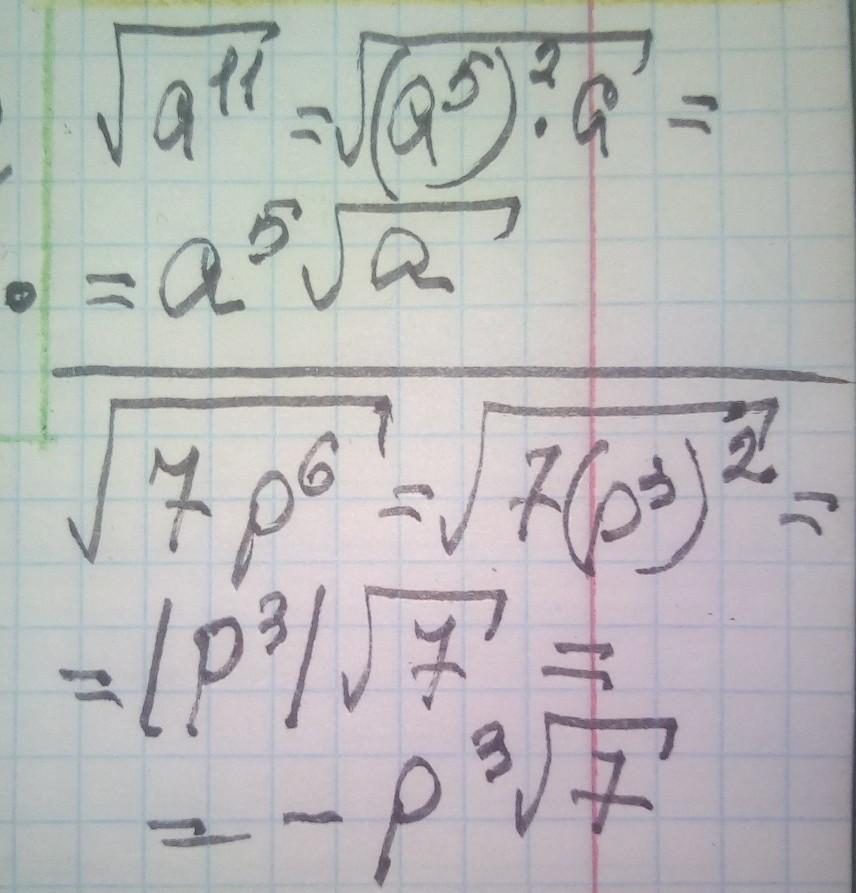 √a¹¹ = √(a⁵)² · a =
= a⁵√a
√7p⁶ = √7(p³)² =
= |p³|√7 =
= - p³√7